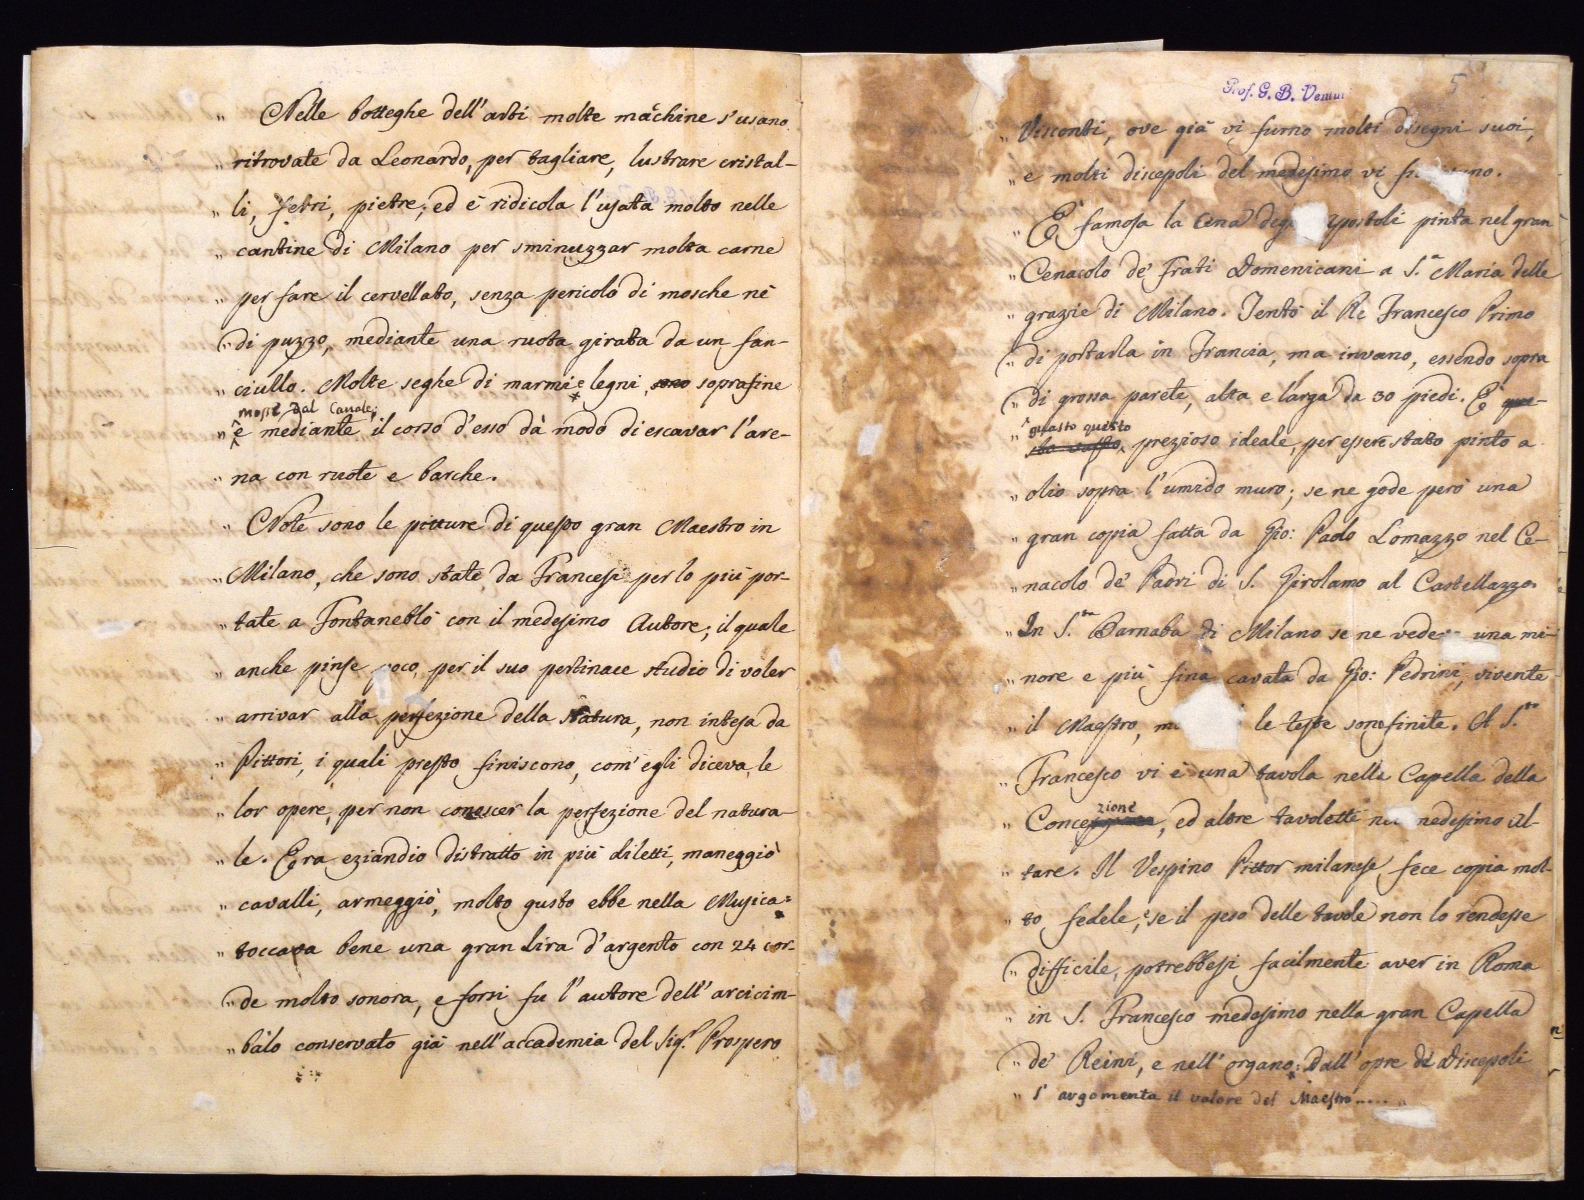 „ Nelle botteghe dell'arti molte machine s'usano
„ ritrovate da Leonardo, per tagliare, lustrare cristal-
„ li, fetri, pietre; ed è ridicola l'usata molto nelle
„ cantine di Milano per sminuzzar molta carne
„ per fare il cervellato, senza pericolo di mosche nè
„ di puzzo, mediante una ruota girata da un fan-
„ ciullo. Molte seghe di marmi e legni, sono soprafine
mosse dal Canale;
„ e mediante il corso d'esso dà modo di escavar l'are-
„ na con ruote e barche.
„ Note sono le pitture di questo gran Maestro in
„ Milano, che sono state da Francesi per lo più por-
„ tate a Fontaneblò con il medesimo Autore; il quale
„ anche pinse poco, per il suo pertinace studio di voler
„ arrivar alla perfezione della Natura, non intesa da
„ Pittori, i quali presto finiscono, com'egli diceva, le
„ lor opere, per non conoscer la perfezione del natura-
„ le. Era eziandio distratto in più diletti, maneggiò
„ cavalli, armeggiò, molto gusto ebbe nella Musica:
„ toccava bene una gran Lira d'argento con 24 cor-
„ de molto sonora, e forsi fu l'autore dell'arcicim-
„ balo conservato già nell'accademia del Sig.r Prospero
Prof. G. B. Venturi
5
„ Visconti, ove già vi furno molti disegni suoi,
„ e molti discepoli del medesimo vi
„ È famosa la Cena degli Apostoli pinta nel gran
„ Cenacolo de' Frati Domenicani a S.a Maria delle
„ grazie di Milano. Tentò il Re Francesco Primo
„ di portarla in Francia, ma invano, essendo sopra
„ di grossa parete, alta e larga da 30 piedi. È que-
guasto questo
„ sto prezioso ideale, per essere stato pinto a
„ olio sopra l'umido muro; se ne gode però una
„ gran copia fatta da Gio: Paolo Lomazzo nel Ce-
„ nacolo de' Padri di S. Girolamo al Castellazzo.
„ In S.to Barnaba di Milano se ne vede una mi-
„ nore e più fina cavata da Gio: Pedrini, vivente
„ il Maestro, le teste sono finite. A S.to
„ Francesco vi è una tavola nella Capella della
zione
„ Conce, ed altre tavolette nel medesimo Al-
„ tare. Il Vespino Pittor milanese fece copia mol-
„ to fedele, e se il peso delle tavole non lo rendesse
„ difficile, potrebbesi facilmente aver in Roma
„ in S. Francesco medesimo nella gran Capella
„ de' Reini, e nell'organo: Dall'opre de' Discepoli
„ s'argomenta il valore del Maestro.....